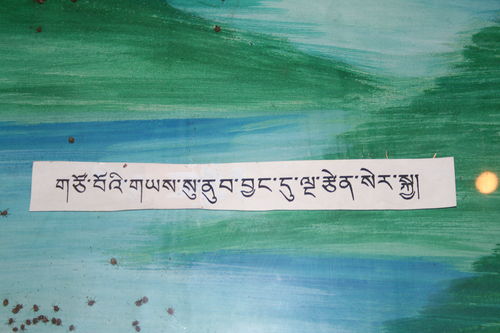 གཙོ་བོའི་གཡས་སུ་ནུབ་བྱང་དུ་ལྔ་རྩེན་སེར་སྐྱ།